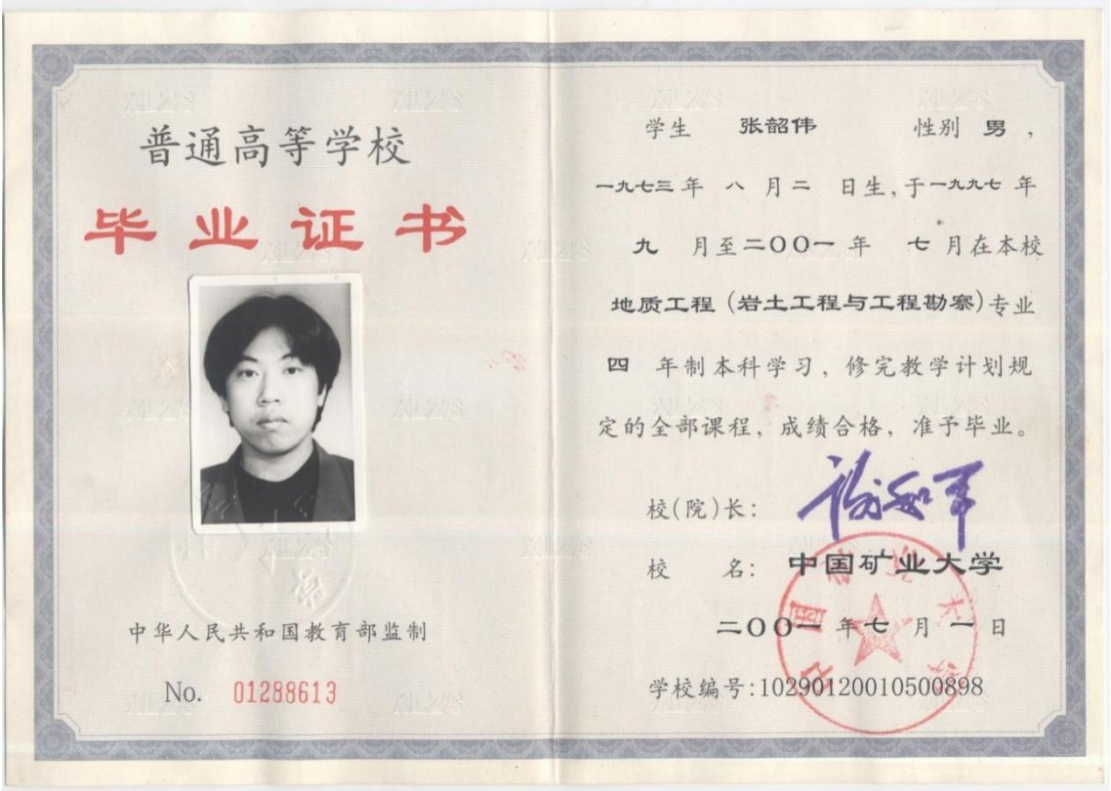 普通高等学校
毕业证书
中华人民共和国教育部监制
No. 01288613
学生 张韶伟 性别 男，
一九七三年 八 月二 日生，于一九九七 年
九 月至二〇〇一 年 七 月在本校
地质工程（岩土工程与工程勘察）专业
四 年制本科学习，修完教学计划规
定的全部课程，成绩合格，准予毕业。
校(院)长：
校 名：中国矿业大学
二〇〇一 年七 月 一 日
学校编号:10290120010500898
中国矿业大学